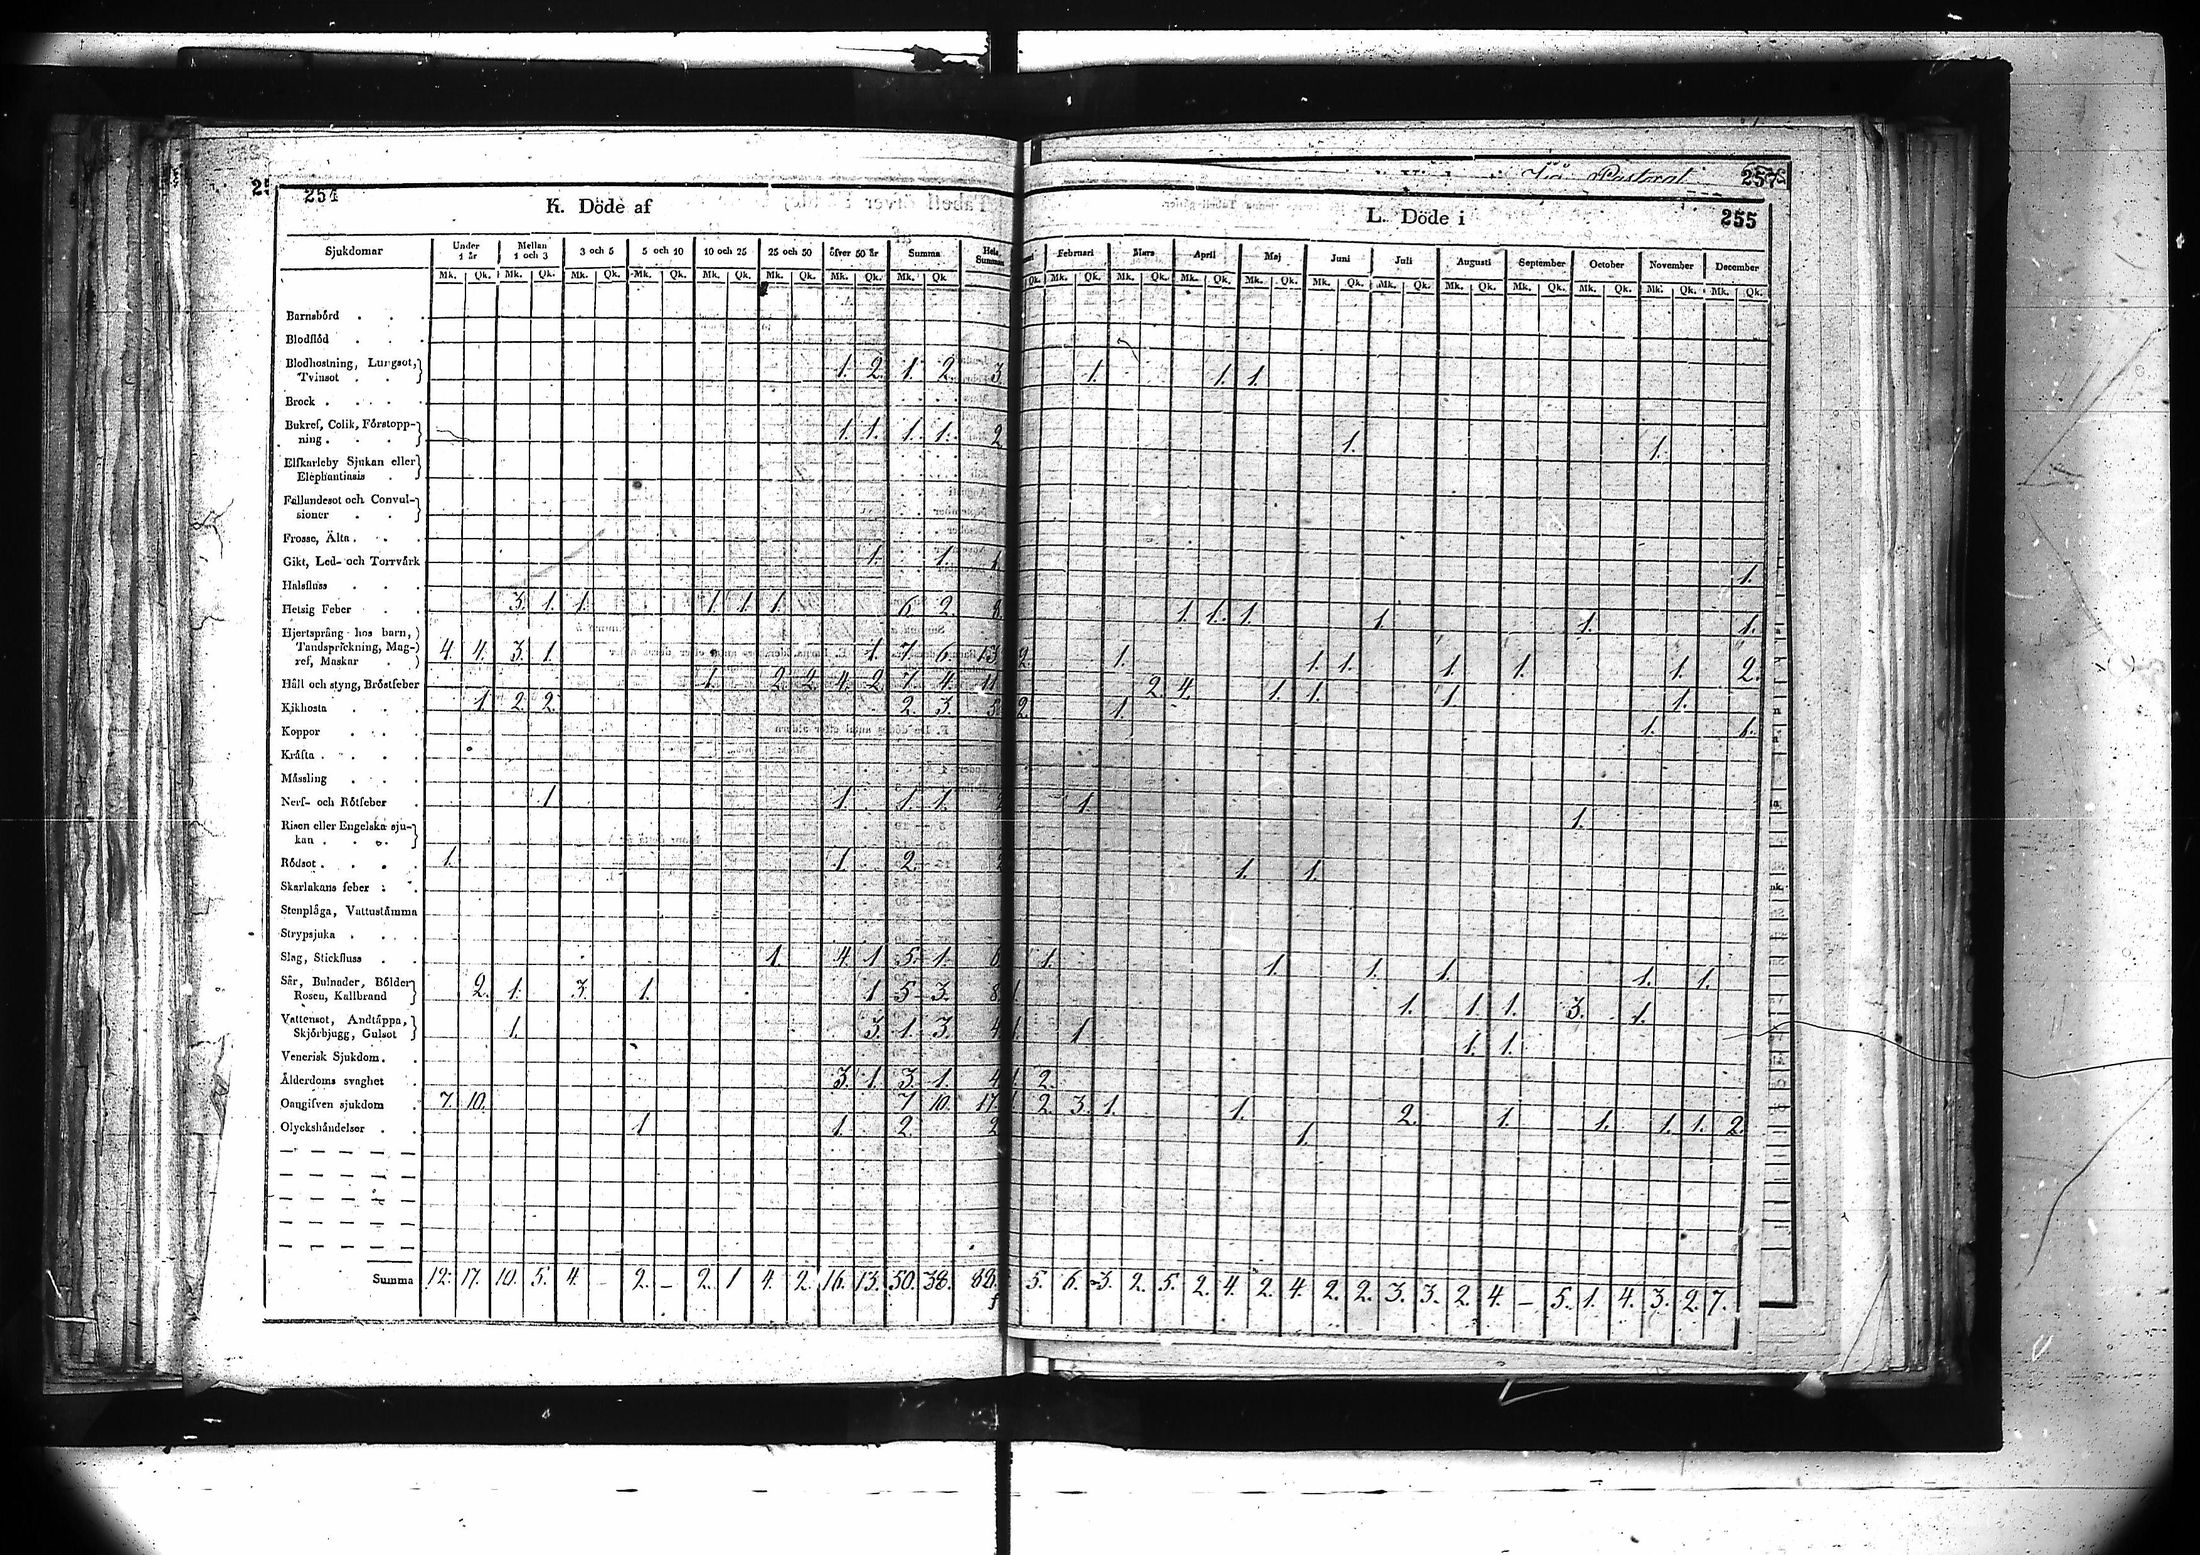 254
K. Döde af
Sjukdomar Under 1 år Mellan 1 och 3 3 och 5 5 och 10 10 och 25 25 och 50 öfver 50 år Summa Hela Summan
Mk. Qk. Mk. Qk. Mk. Qk. Mk. Qk. Mk. Qk. Mk. Qk. Mk. Qk. Mk. Qk.
Barnsbörd . . .
Blodflöd . . .
Blodhostning, Lungsot,
Tvinsot . . 1. 2. 1. 2. 3
Brock . . . .
Bukref, Colik, Förstopp-
ning . . . 1. 1. 1. 1. 2
Elfkarleby Sjukan eller
Elephantiasis .
Fallandesot och Convul-
sioner . .
Frosse, Älta . . .
Gikt, Led- och Torrvärk 1. 1. 1
Halsfluss . . .
Hetsig Feber . . 3. 1. 1. 1. 1. 1. 6. 2. 8.
Hjertsprång hos barn,
Tandsprickning, Mag-
ref, Maskar . 4. 4. 3. 1. 1. 7. 6. 13
Håll och styng, Bröstfeber 1. 2. 2. 4. 2. 7. 4. 11
Kikhosta . . . 1. 2. 2. 2. 3. 5
Koppor . . .
Kräfta . . . .
Mässling . . .
Nerf- och Rötfeber . 1 1. 1. 1.
Risen eller Engelska sju-
kan . . .
Rödsot . . . . 1. 1. 2.
Skarlakans feber . .
Stenplåga, Vattustämma
Strypsjuka . . .
Slag, Stickfluss . . 1. 4. 1 5. 1. 6
Sår, Bulnader, Bölder
Rosen, Kallbrand 2. 1. 3. 1. 1 5. 3. 8
Vattensot, Andtäppa,
Skjörbjugg, Gulsot 1. 3. 1. 3. 4
Venerisk Sjukdom . .
Ålderdoms svaghet . 3. 1. 3. 1. 4
Oangifven sjukdom . 7. 10. 7 10. 17.
Olyckshändelser . . 1 1. 2. 2
Summa 12. 17. 10. 5. 4. – 2. – 2. 1 4. 2. 16. 13. 50. 38. 88.
Pastorat 257
L. Döde i
255
Februari Mars April Maj Juni Juli Augusti September October November December
Qk. Mk. Qk. Mk. Qk. Mk. Qk. Mk. Qk. Mk. Qk. Mk. Qk. Mk. Qk. Mk. Qk. Mk. Qk. Mk. Qk. Mk. Qk.
1. 1. 1.
1. 1.
1.
1. 1. 1. 1. 1. 1.
2. 1. 1. 1. 1. 1. 1. 2.
2. 4. 1. 1. 1. 1.
2. 1. 1. 1.
1. 1.
1. 1.
1. 1. 1. 1. 1. 1.
1. 1. 1. 1. 3. 1.
1. 1 1. 1.
1. 2.
1. 2. 3. 1. 1. 2. 1. 1. 1. 1. 2.
1.
5. 6. 3. 2. 5. 2. 4. 2. 4. 2. 2. 3. 3. 2. 4. – 5. 1. 4. 3. 2. 7.